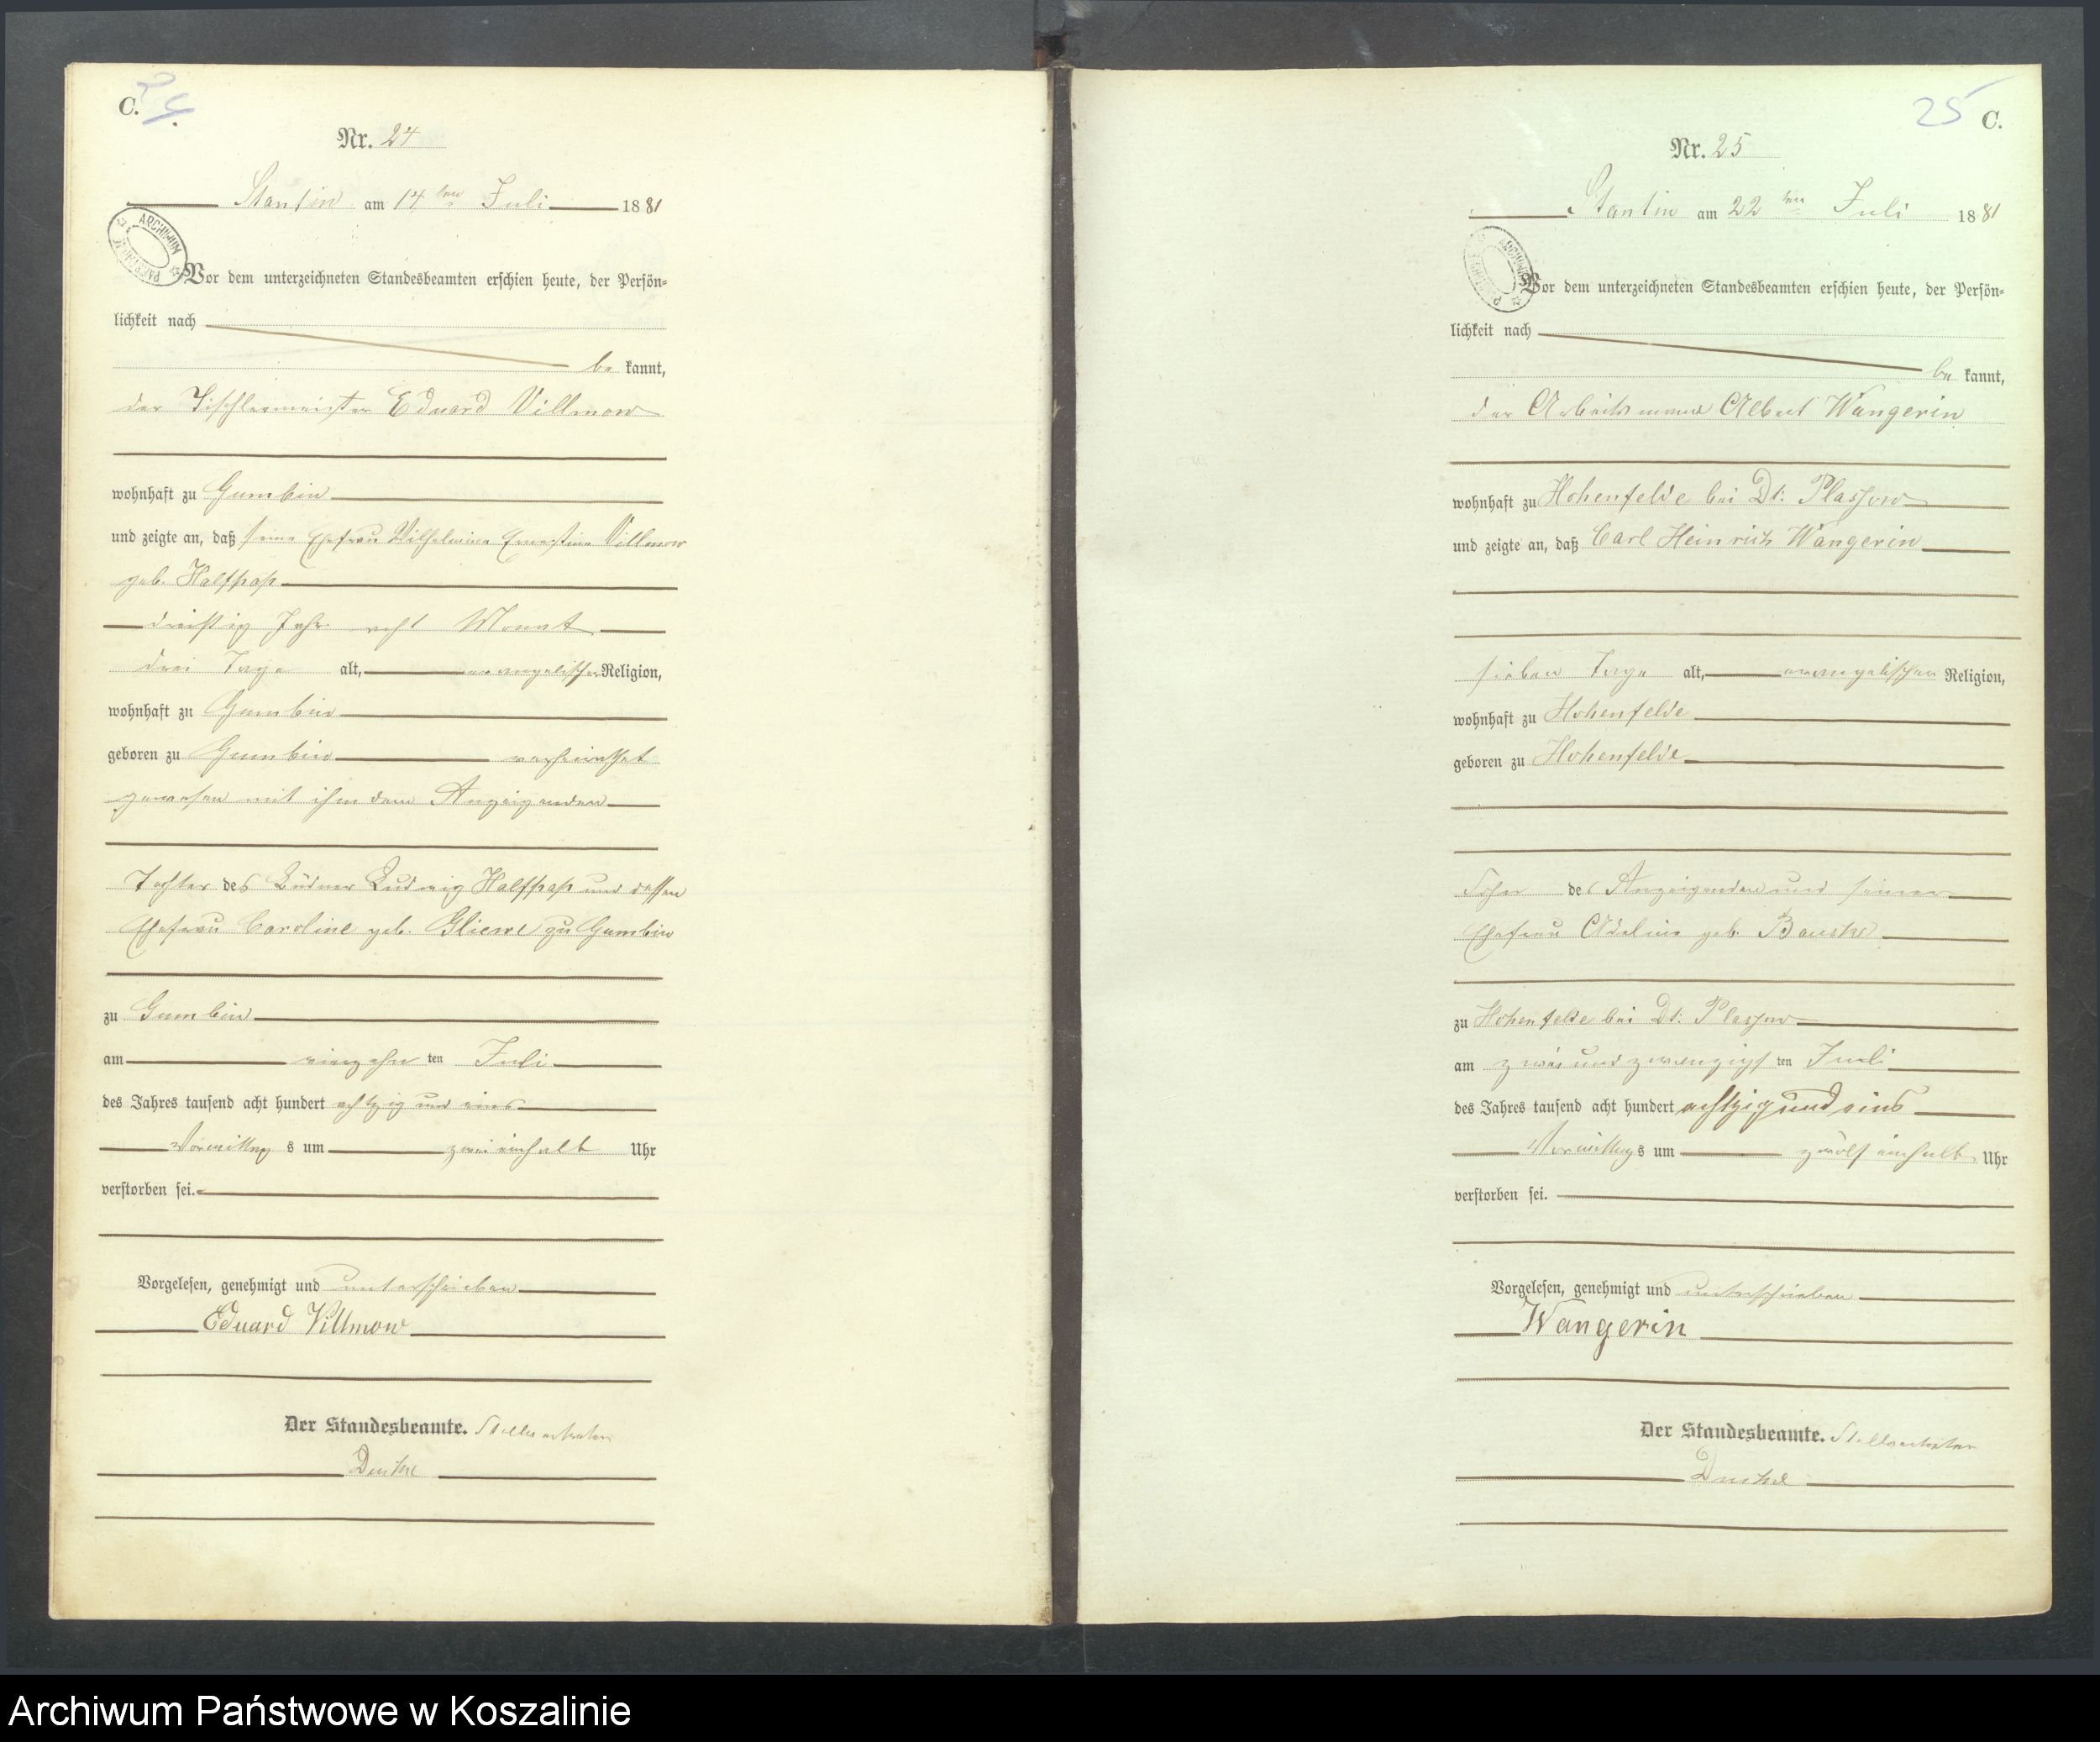 C.
24
Nr. 24
Stantin am 14 ten Juli 1881
ARCHIWUM
Vor dem unterzeichneten Standesbeamten erschien heute, der Persön-
lichkeit nach
be kannt,
der Tischlermeister Eduard Villmow
wohnhaft zu Gumbin
und zeigte an, daß seine Ehefrau Wilhelmine Ernestine Villmow
geb. Halfpap
dreißig Jahr acht Monat
drei Tage alt, evangelischer Religion,
wohnhaft zu Gumbin
geboren zu Gumbin verheirathet
gewesen mit ihm dem Anzeigenden
Tochter des Büdner Ludwig Halfpap und dessen
Ehefrau Caroline geb. Gliewe zu Gumbin
zu Gumbin
am vierzehn ten Juli
des Jahres tausend acht hundert achtzig und eins
Vormittag s um zwei einhalb Uhr
verstorben sei.
Vorgelesen, genehmigt und unterschrieben
Eduard Villmow
Der Standesbeamte. Stellvertreter
25
C.
Nr. 25
Stantin am 22 ten Juli 1881
ARCHIWUM
Vor dem unterzeichneten Standesbeamten erschien heute, der Persön-
lichkeit nach
be kannt,
der Arbeitsmann Albert Wangerin
wohnhaft zu Hohenfelde bei Dt: Plassow
und zeigte an, daß Carl Heinrich Wangerin
sieben Tage alt, evangelischer Religion,
wohnhaft zu Hohenfelde
geboren zu Hohenfelde
Sohn des Anzeigenden und seiner
Ehefrau Adeline geb. Bauske
zu Hohenfelde bei Dt: Plassow
am zwei und zwanzigs ten Juli
des Jahres tausend acht hundert achtzig und eins
Vormittags um zwölf einhalb Uhr
verstorben sei.
Vorgelesen, genehmigt und unterschrieben
Wangerin
Der Standesbeamte. Stellvertreter
Archiwum Państwowe w Koszalinie